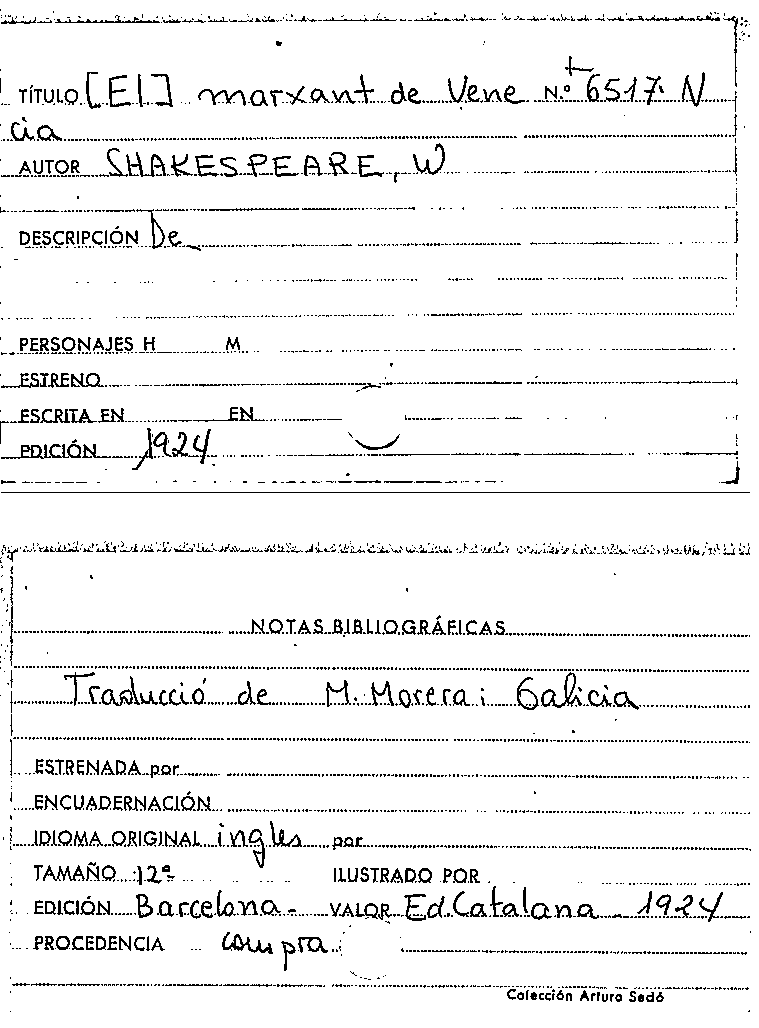 TÍTULO [El] marxant de Vene N.º 6517. N
cia
AUTOR SHAKESPEARE, W
DESCRIPCIÓN De
PERSONAJES H M
ESTRENO
ESCRITA EN EN
EDICIÓN 1924
NOTAS BIBLIOGRÁFICAS
Traducció de M. Morera i Galicia
ESTRENADA por
ENCUADERNACIÓN
IDIOMA ORIGINAL ingles por
TAMAÑO 12º ILUSTRADO POR
EDICIÓN Barcelona - VALOR Ed. Catalana - 1924
PROCEDENCIA compra
Colección Arturo Sedó